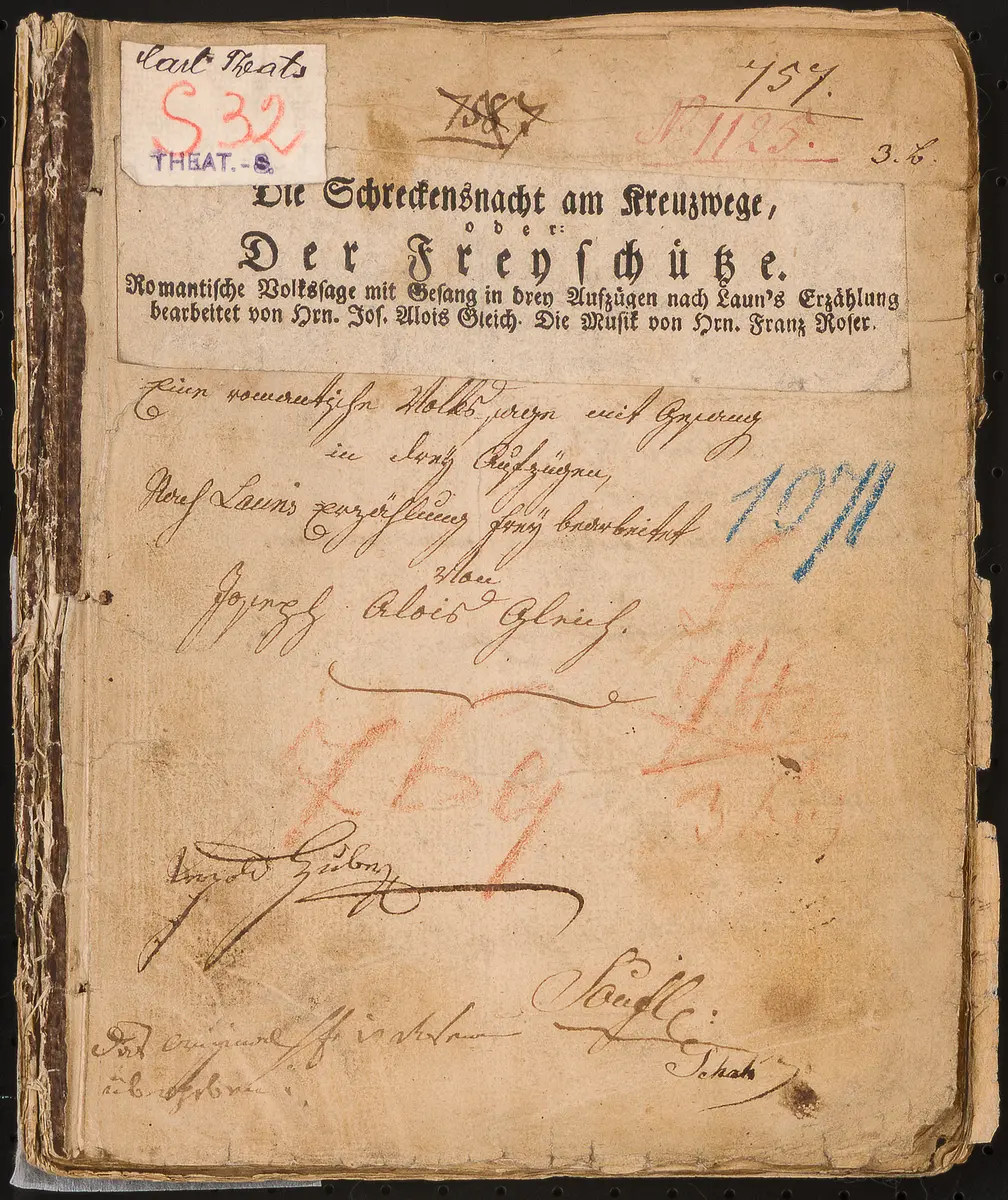 Carl Theat
S 32
THEAT.-S.
757.
No 1125.
3. b.
Die Schreckensnacht am Kreuzwege,
oder:
Der Freyschütze.
Romantische Volkssage mit Gesang in drey Aufzügen nach Laun's Erzählung
bearbeitet von Hrn. Jos. Alois Gleich. Die Musik von Hrn. Franz Roser.
Eine romantische Volkssage mit Gesang
in drey Aufzügen,
Nach Launs Erzählung frey bearbeitet
von
Joseph Alois Gleich.
1071
74
3
Huber
Soufl:
Das original